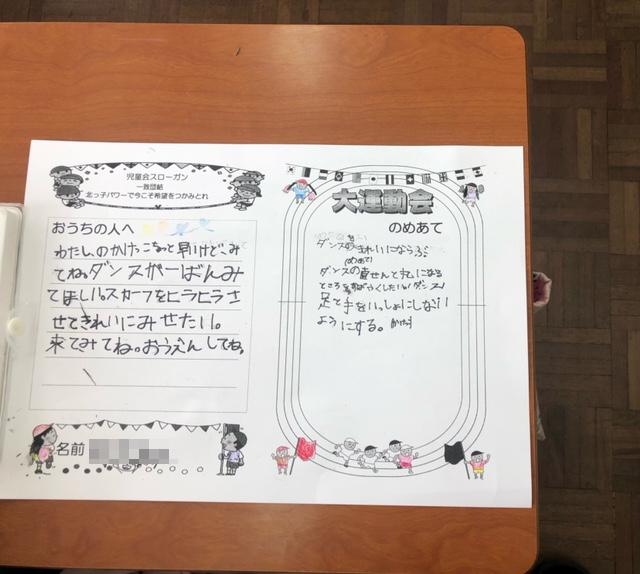 児童会スローガン
一致団結
北っ子パワーで今こそ希望をつかみとれ
おうちの人へ
わたしのかけっこちょっと早いけどみ
てね。ダンスがいちばんみ
てほしい。スカーフをヒラヒラさ
せてきれいにみせたい。
来てみてね。おうえんしてね。
名前
大運動会
のめあて
ダンスのきれいにならぶ
(めあて)
ダンスの直せんと丸になる
ところをすばやくしたい。ダンス
足と手をいっしょにしない
ようにする。